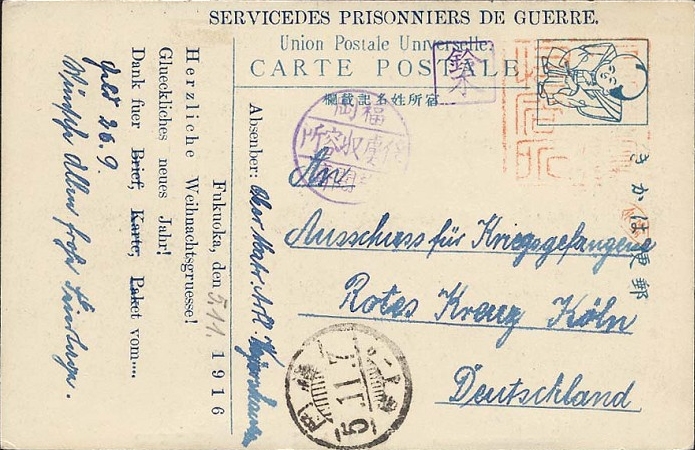 SERVICEDES PRISONNIERS DE GUERRE.
Union Postale Universelle.
CARTE POSTALE
欄載記名姓所宿
鈴木
岡福
所容收虜俘
きかは便郵
An
Ausschuss für Kriegsgefangene
Rotes Kreuz Köln
Deutschland
5.11.7
Absender: Ober Matr. Art.
Fukuoka, den 5.11. 1916
Herzliche Weihnachtsgruesse!
Glueckliches neues Jahr!
Dank fuer Brief, Karte, Paket vom....
26.9.
Wünsche Allen frohe